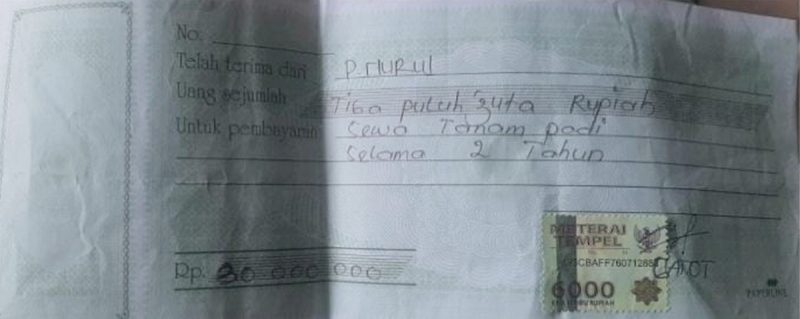 No.
Telah terima dari P NURUL
Uang sejumlah Tiga puluh juta Rupiah
Untuk pembayaran Sewa Tanam padi
Selama 2 Tahun
METERAI
TEMPEL
6000
ENAM RIBU RUPIAH
GATOT
Rp. 30 000 000
PAPERLINE